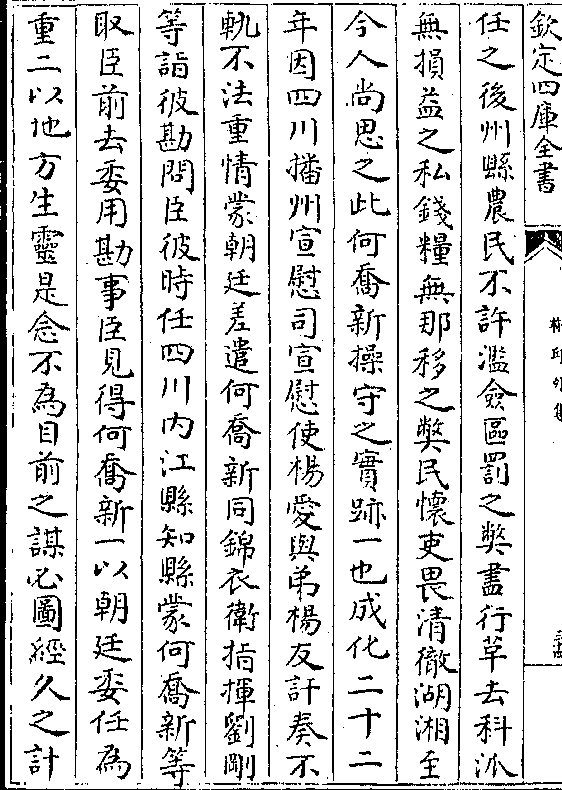 欽定四庫全書
椒邱外集
任之後州縣農民不許濫僉區罰之弊盡行革去科派
無損益之私錢糧無那移之弊民懷吏畏清徹湖湘至
今人尚思之此何喬新操守之實跡一也成化二十二
年因四川播州宣慰司宣慰使楊愛與弟楊友訐奏不
軌不法重情蒙朝廷差遣何喬新同錦衣衛指揮劉剛
等詣彼勘問臣彼時任四川内江縣知縣蒙何喬新等
取臣前去委用勘事臣見得何喬新一以朝廷委任為
重二以地方生靈是念不為目前之謀必圖經久之計